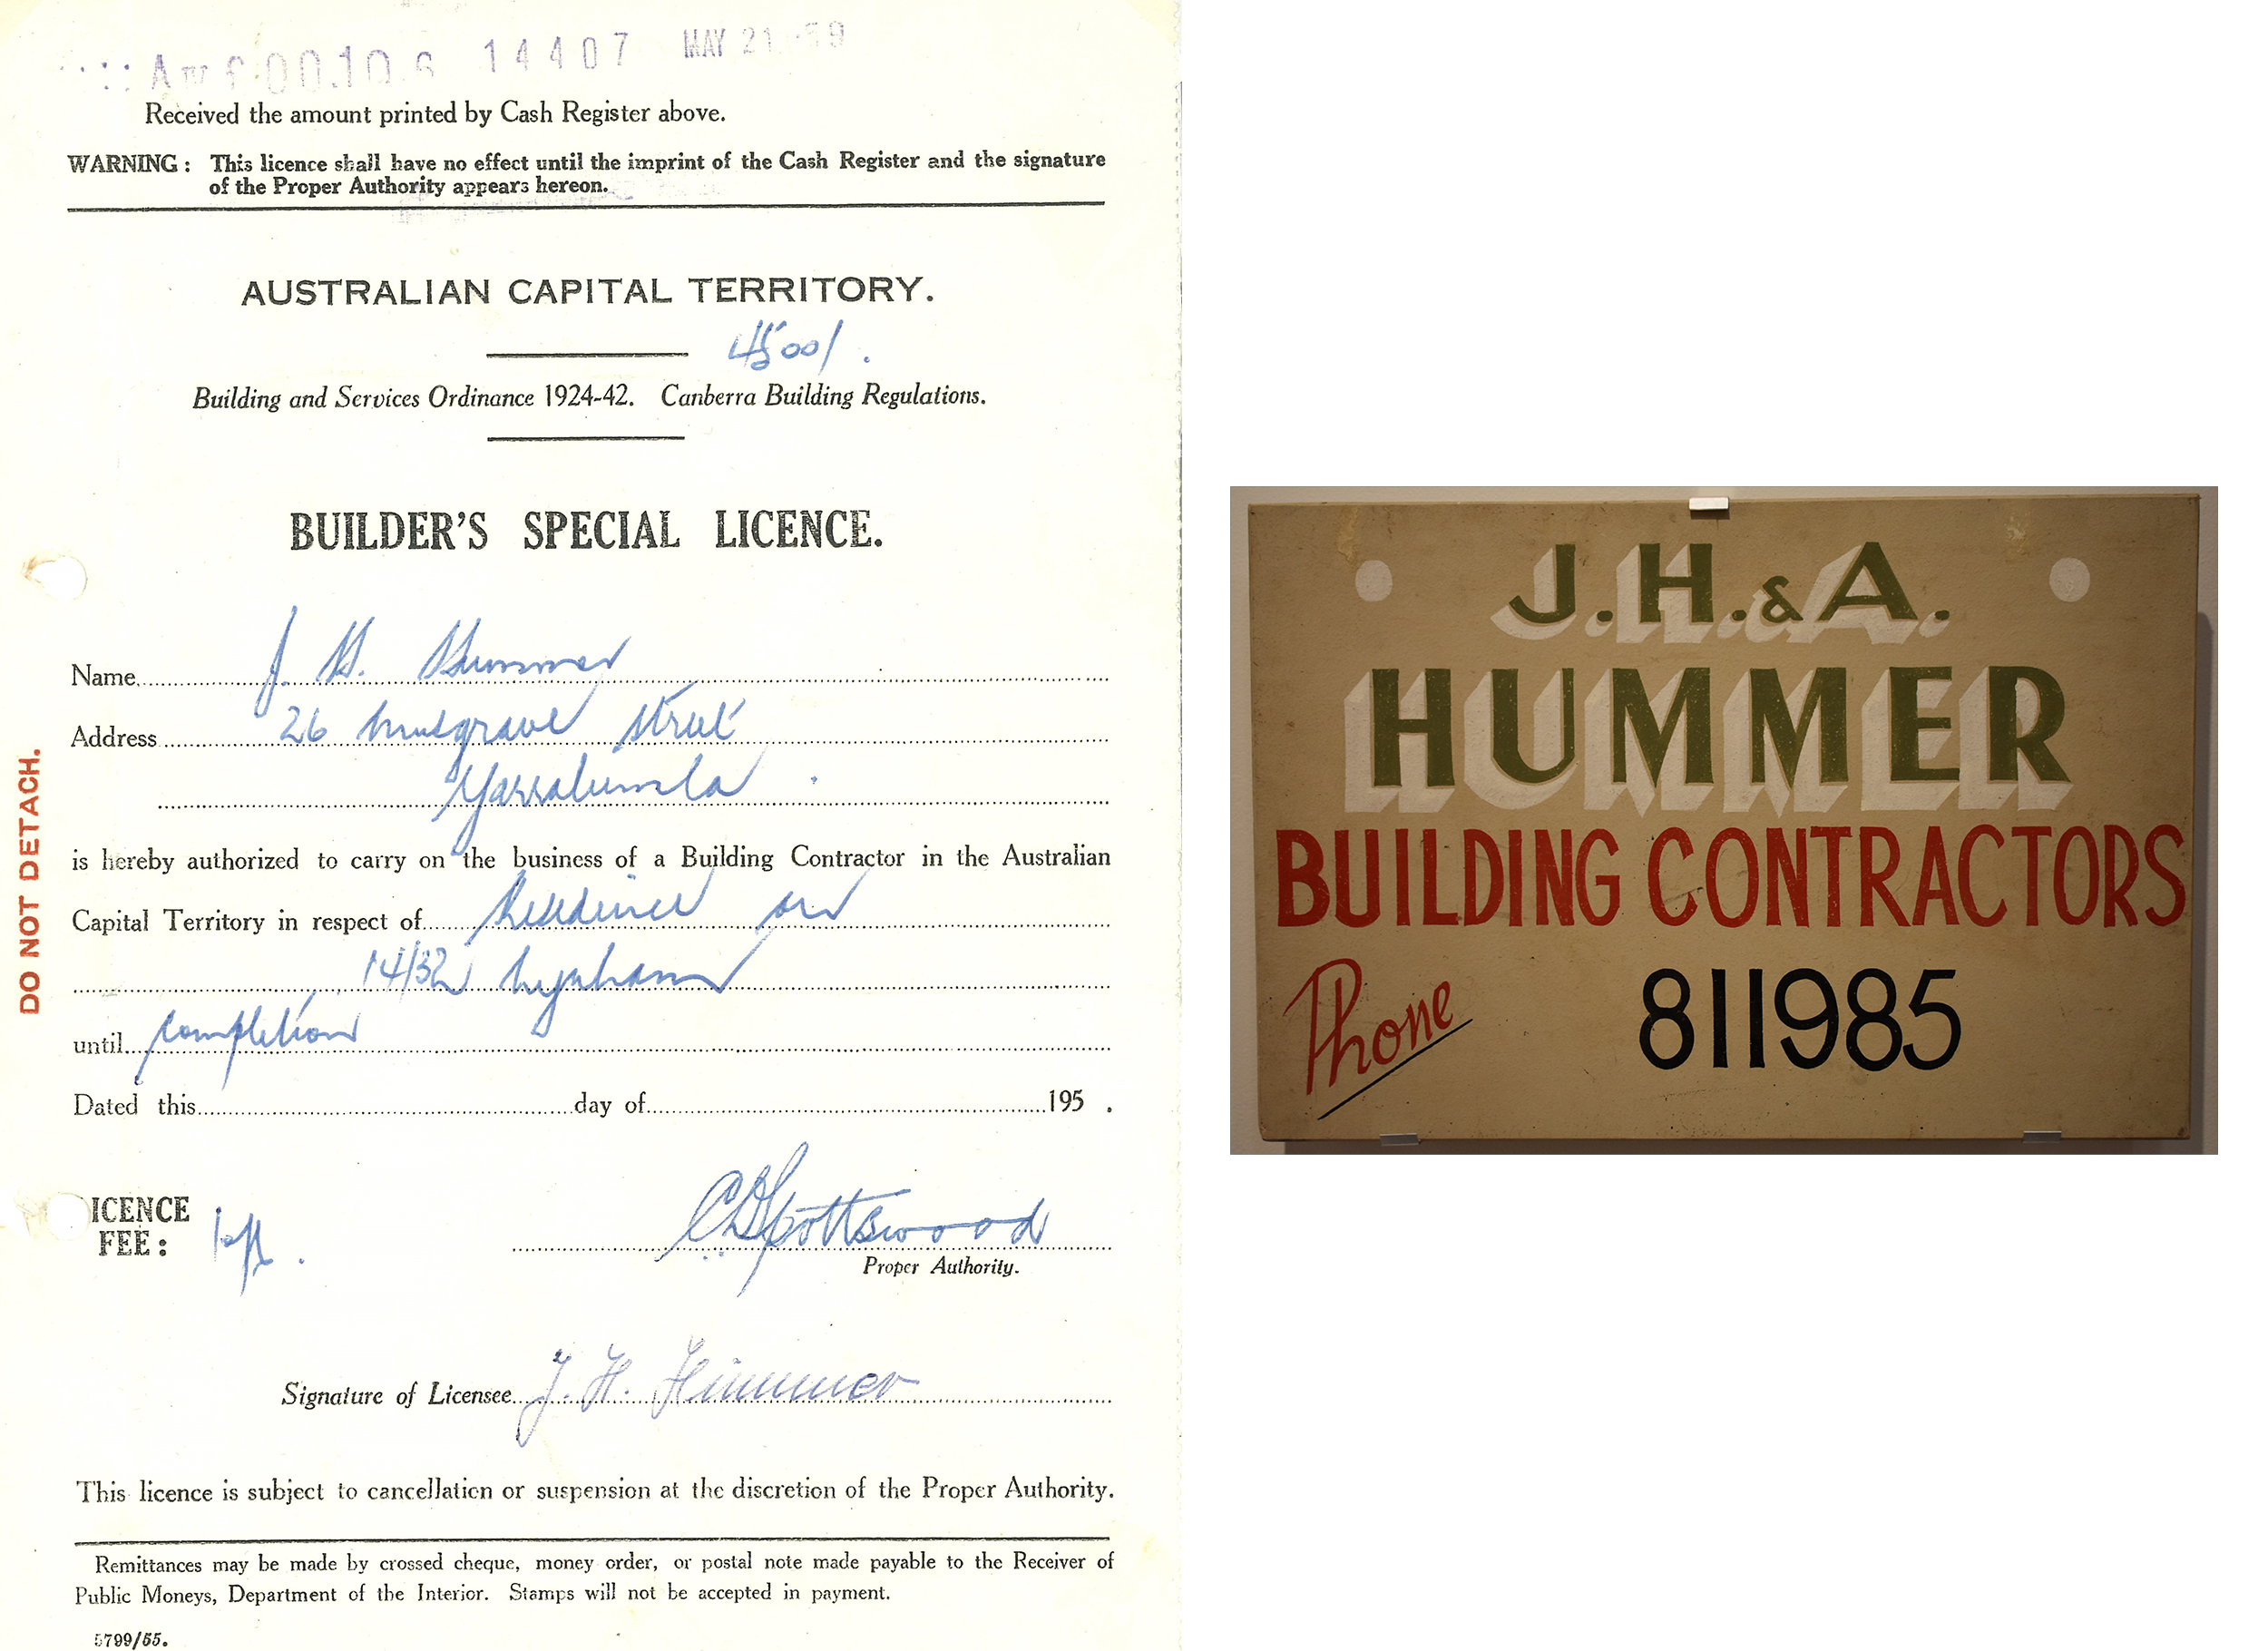 14407 MAY 21 59
Received the amount printed by Cash Register above.
WARNING: This licence shall have no effect until the imprint of the Cash Register and the signature
of the Proper Authority appears hereon.
AUSTRALIAN CAPITAL TERRITORY.
4500/.
Building and Services Ordinance 1924-42. Canberra Building Regulations.
BUILDER'S SPECIAL LICENCE.
Name J. H. Hummer
Address 26 Musgrave Street
Yarralumla
is hereby authorized to carry on the business of a Building Contractor in the Australian
Capital Territory in respect of Residence on
14/32 Lyneham
until completion
Dated this day of 195 .
ICENCE
FEE: 10/-.
Spottswood
Proper Authority.
Signature of Licensee J. H. Hummer
This licence is subject to cancellation or suspension at the discretion of the Proper Authority.
Remittances may be made by crossed cheque, money order, or postal note made payable to the Receiver of
Public Moneys, Department of the Interior. Stamps will not be accepted in payment.
5799/55.
DO NOT DETACH.
J.H.&A.
HUMMER
BUILDING CONTRACTORS
Phone 811985